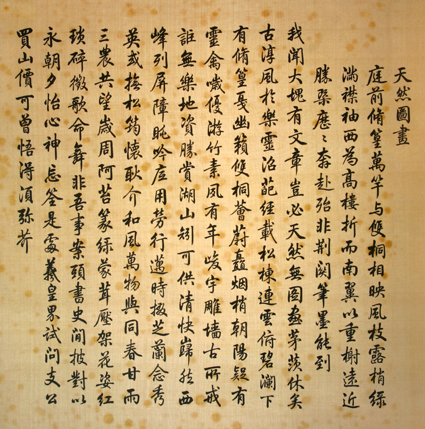 天然圖畫
庭前脩篁萬竿与雙桐相映風枝露梢緑
滿襟袖西為高樓折而南翼以重榭遠近
勝槩歷〻奔赴殆非荆関筆墨能到
我聞大塊有文章豈必天然無圖畫茅茨休矣
古淳風於樂靈沼葩經載松棟連雲俯碧瀾下
有脩篁戛幽籟雙桐薈蔚矗烟梢朝陽疑有
靈禽噦優游竹素夙有年峻宇雕墻古所戒
詎無樂地資勝賞湖山矧可供清快巋然西
峰列屏障眺吟底用勞行邁時掇芝蘭念秀
英或撫松筠懷耿介和風萬物與同春甘雨
三農共望歲周阿苔篆緑蒙茸壓架花姿紅
瑣碎徵歌命舞非吾事案頭書史閒披對以
永朝夕怡心神忘筌是處羲皇界試問支公
買山價可曾悟得須弥芥